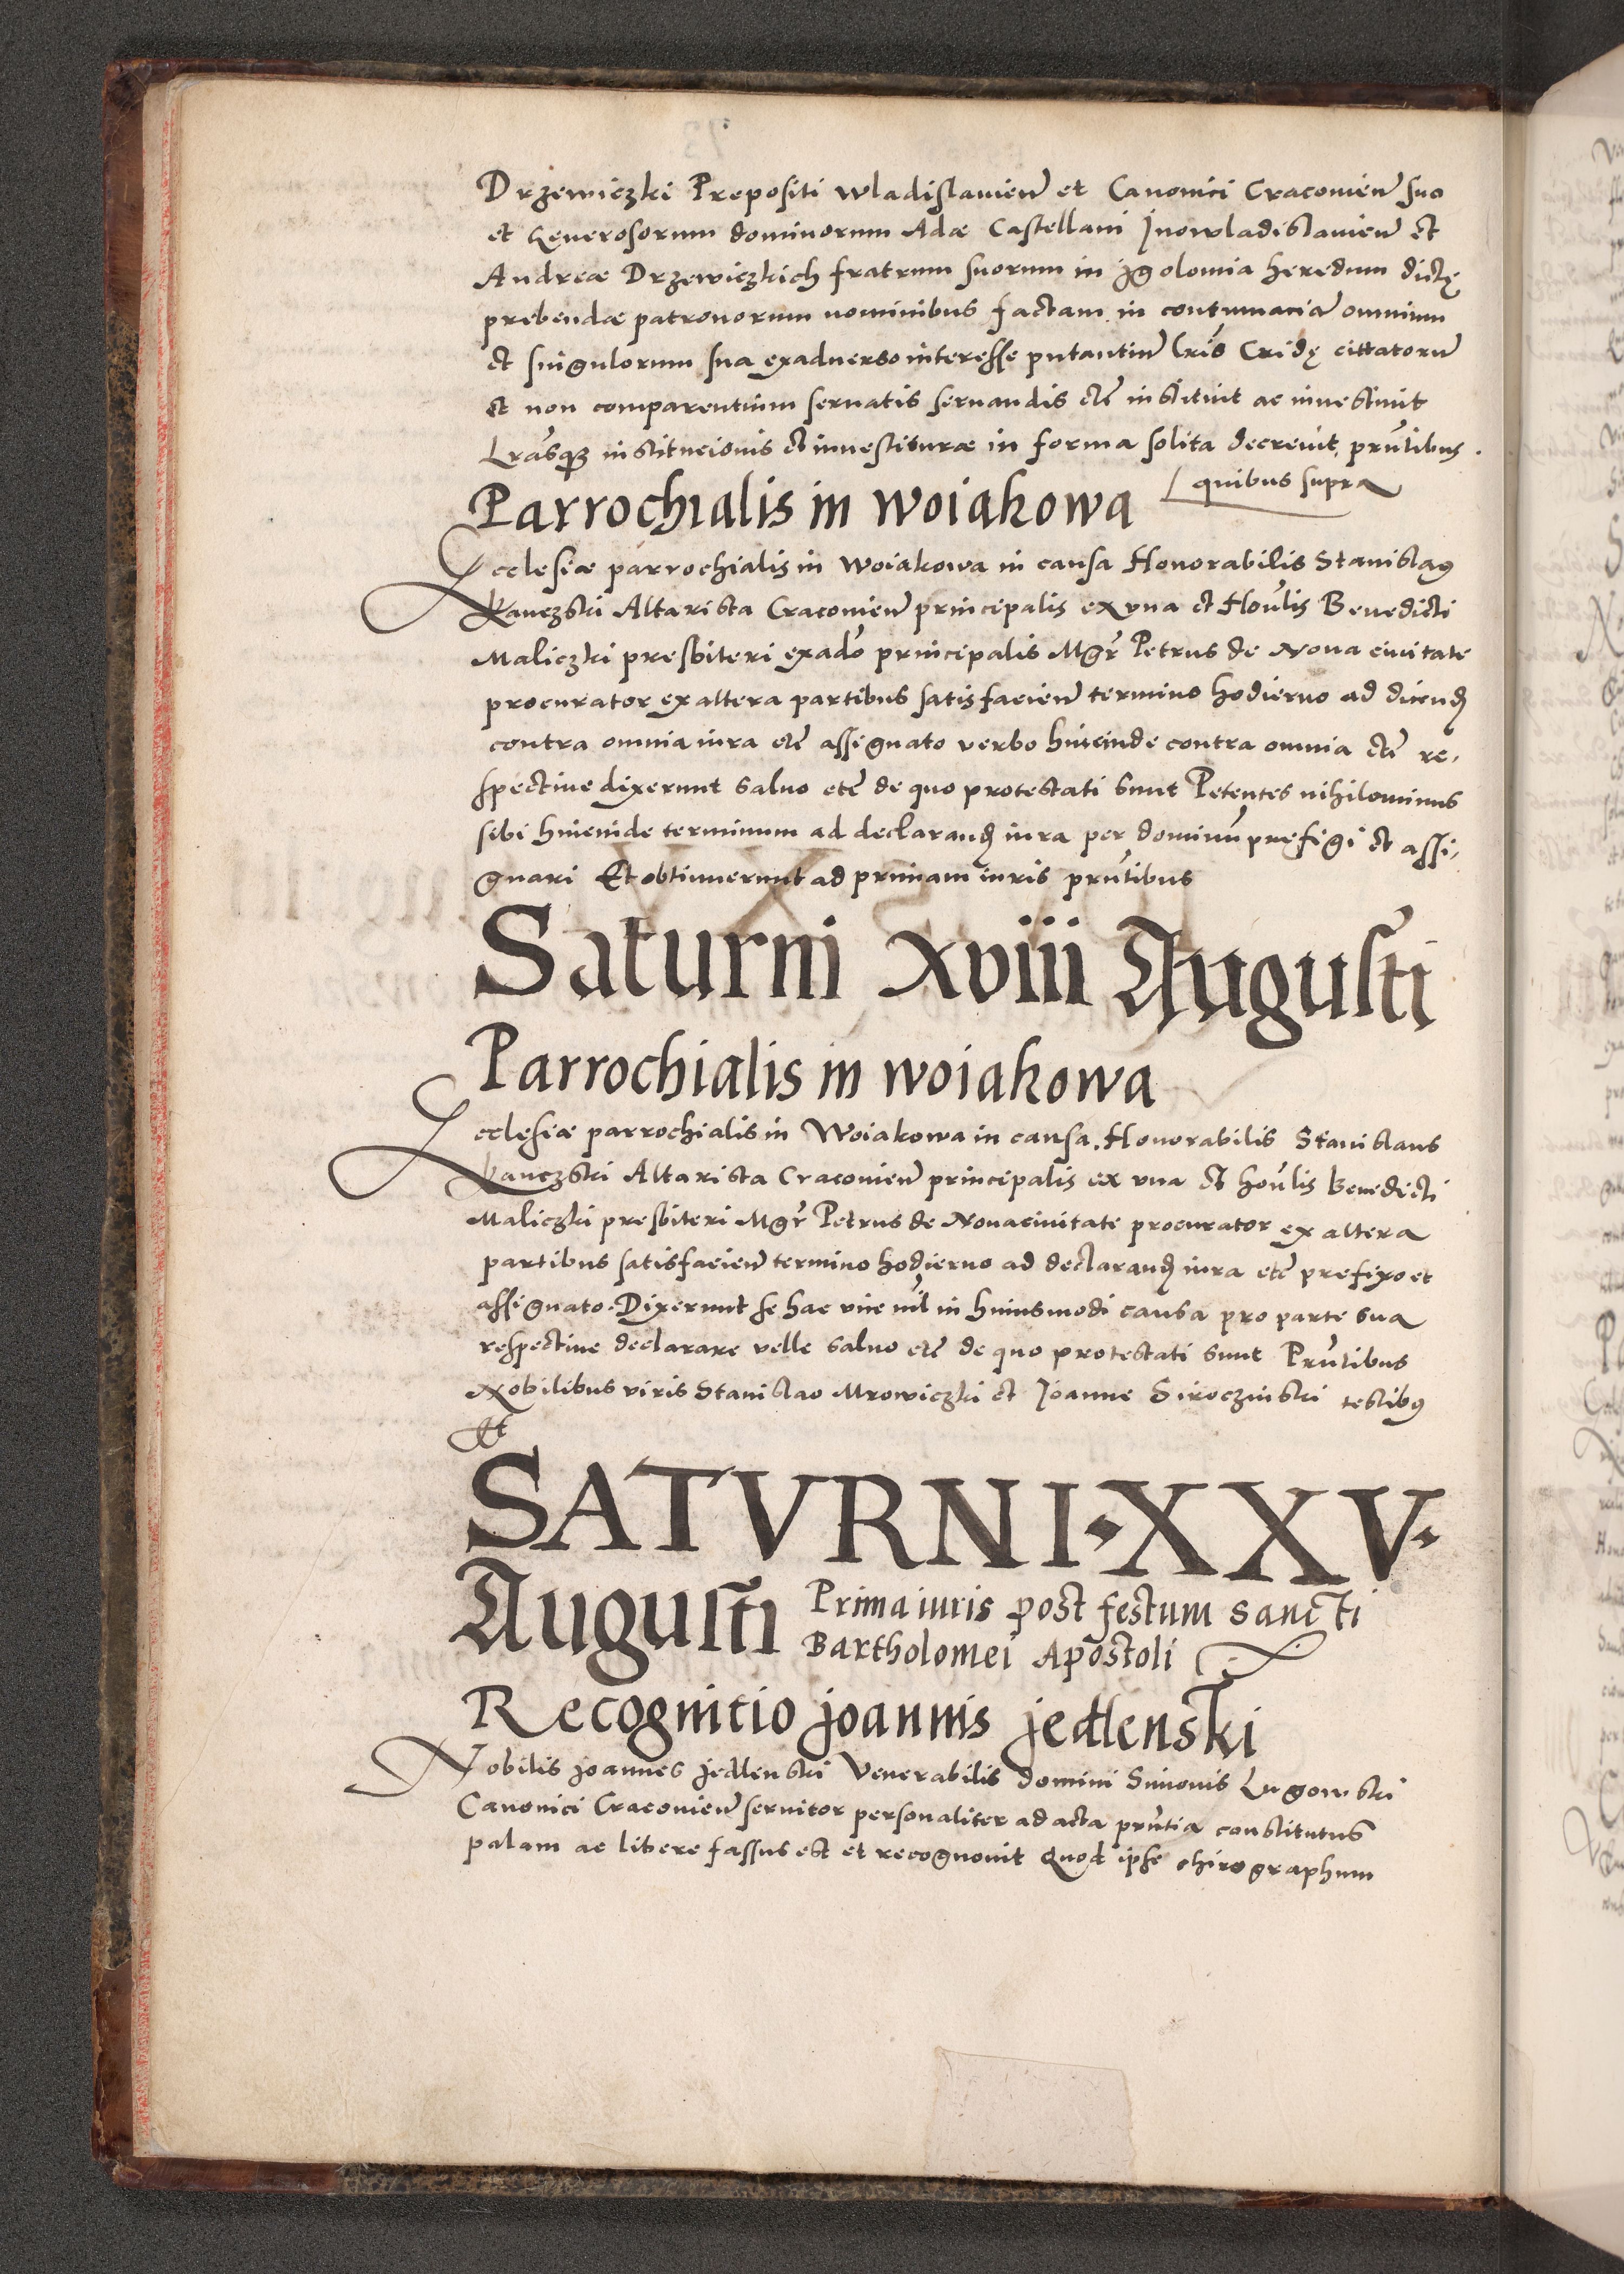 Drzewiczki Prepositi wladislavien̄ et Canonici Cracovien̄ suo
et generosorum dominorum Adæ Castellani Inowladislavien̄ et
Andreæ Drzewiczkich fratrum suorum in Igolomia heredum dictę
prebendæ patronorum nominibus factam in contumaciā omnium
et singulorum sua exadverso interesse putantiū lr̄is Cridę cittatorū
et non comparentium servatis servandis etc̄ instituit ac investivit
Lrāsqꝫ institucionis et investituræ in forma solita decrevit, prn̄tibus.
quibus supra
Parrochialis in woiakowa
Ecclesiæ parrochialis in woiakowa in causa Honorabilis Stanislaꝰ
Kanczski Altarista Cracovien̄ principalis ex una et Hon̄lis Benedicti
Maliczki presbiteri exad̄o principalis Mgr̄ Petrus de Nova civitate
procurator ex altera partibus satisfacien̄ termino hodierno ad dicenđ
contra omnia iura etc̄ assignato verbo hincinde contra omnia etc̄ re,
spective dixerunt salvo etc̄ de quo protestati sunt Petentes nihilominus
sibi hincinde terminum ad declaranđ iura per dominū prefigi et assi,
gnari Et obtinuerunt ad primam iuris prn̄tibus
Saturni xviii Augusti
Parrochialis in woiakowa
Ecclesiæ parrochialis in Woiakowa in causa. Honorabilis Stanislaus
Kanczski Altarista Cracovien̄ principalis ex una et hon̄lis benedicti
Maliczki presbiteri Mgr̄ Petrus de Novacivitate procurator ex altera
partibus satisfacien̄ termino hodierno ad declaranđ iura etc̄ prefixo et
assignato. Dixerunt se hac vice nil̄ in huiusmodi causa pro parte sua
respective declarare velle salvo etc̄ de quo protestati sunt Prn̄tibus
Nobilibus viris Stanislao Mrowiczki et Joanne Siroczinski testibꝰ
Et
SATVRNI·XXV·
Augusti Prima iuris post festum sancti
Bartholomei Apostoli
Recognitio joannis jedlenski
Nobilis joannes jedlenski Venerabilis domini Simonis Lugowski
Canonici Cracovien̄ servitor personaliter ad acta prn̄tia constitutus
palam ac libere fassus est et recognovit Quod ipse chirographum